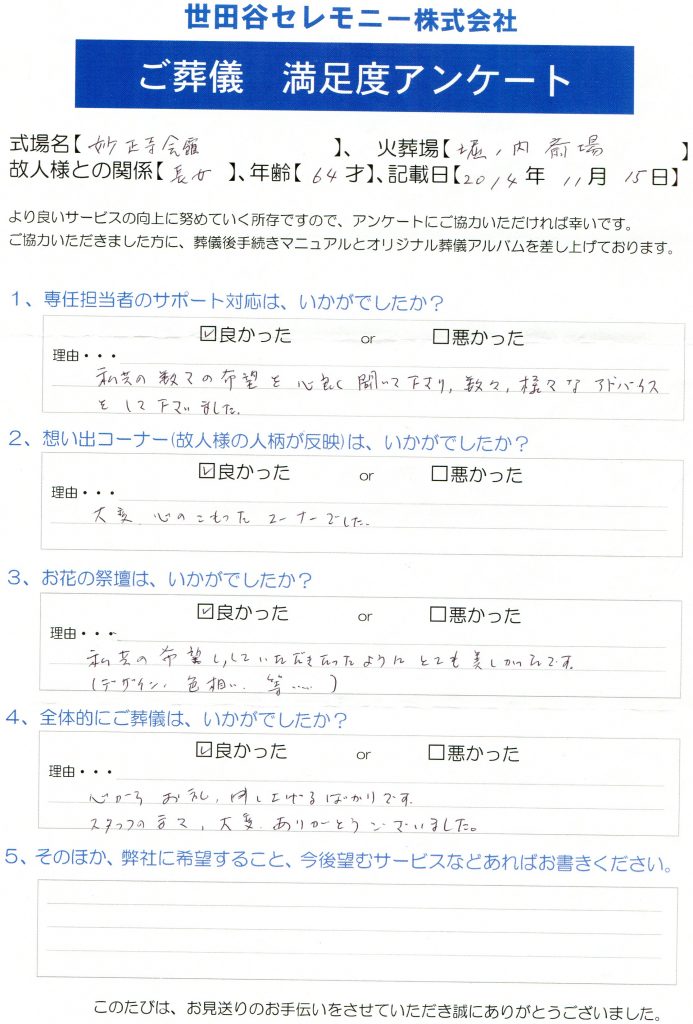 世田谷セレモニー株式会社
ご葬儀 満足度アンケート
式場名【妙正寺会館】、火葬場【堀ノ内斎場】
故人様との関係【長女】、年齢【64才】、記載日【2014年11月15日】
より良いサービスの向上に努めていく所存ですので、アンケートにご協力いただければ幸いです。
ご協力いただきました方に、葬儀後手続きマニュアルとオリジナル葬儀アルバムを差し上げております。
1、専任担当者のサポート対応は、いかがでしたか?
☑良かった or □悪かった
理由・・・
私共の数々の希望を心良く聞いて下さり、数々、様々なアドバイス
をして下さいました。
2、想い出コーナー(故人様の人柄が反映)は、いかがでしたか?
☑良かった or □悪かった
理由・・・
大変、心のこもったコーナーでした。
3、お花の祭壇は、いかがでしたか?
☑良かった or □悪かった
理由・・・
私共の希望していただきたったようにとても美しかったです。
(デザイン、色相い、等……)
4、全体的にご葬儀は、いかがでしたか?
☑良かった or □悪かった
理由・・・
心からお礼、申し上げるばかりです。
スタッフの、大変、ありがとうございました。
5、そのほか、弊社に希望すること、今後望むサービスなどあればお書きください。
このたびは、お見送りのお手伝いをさせていただき誠にありがとうございました。